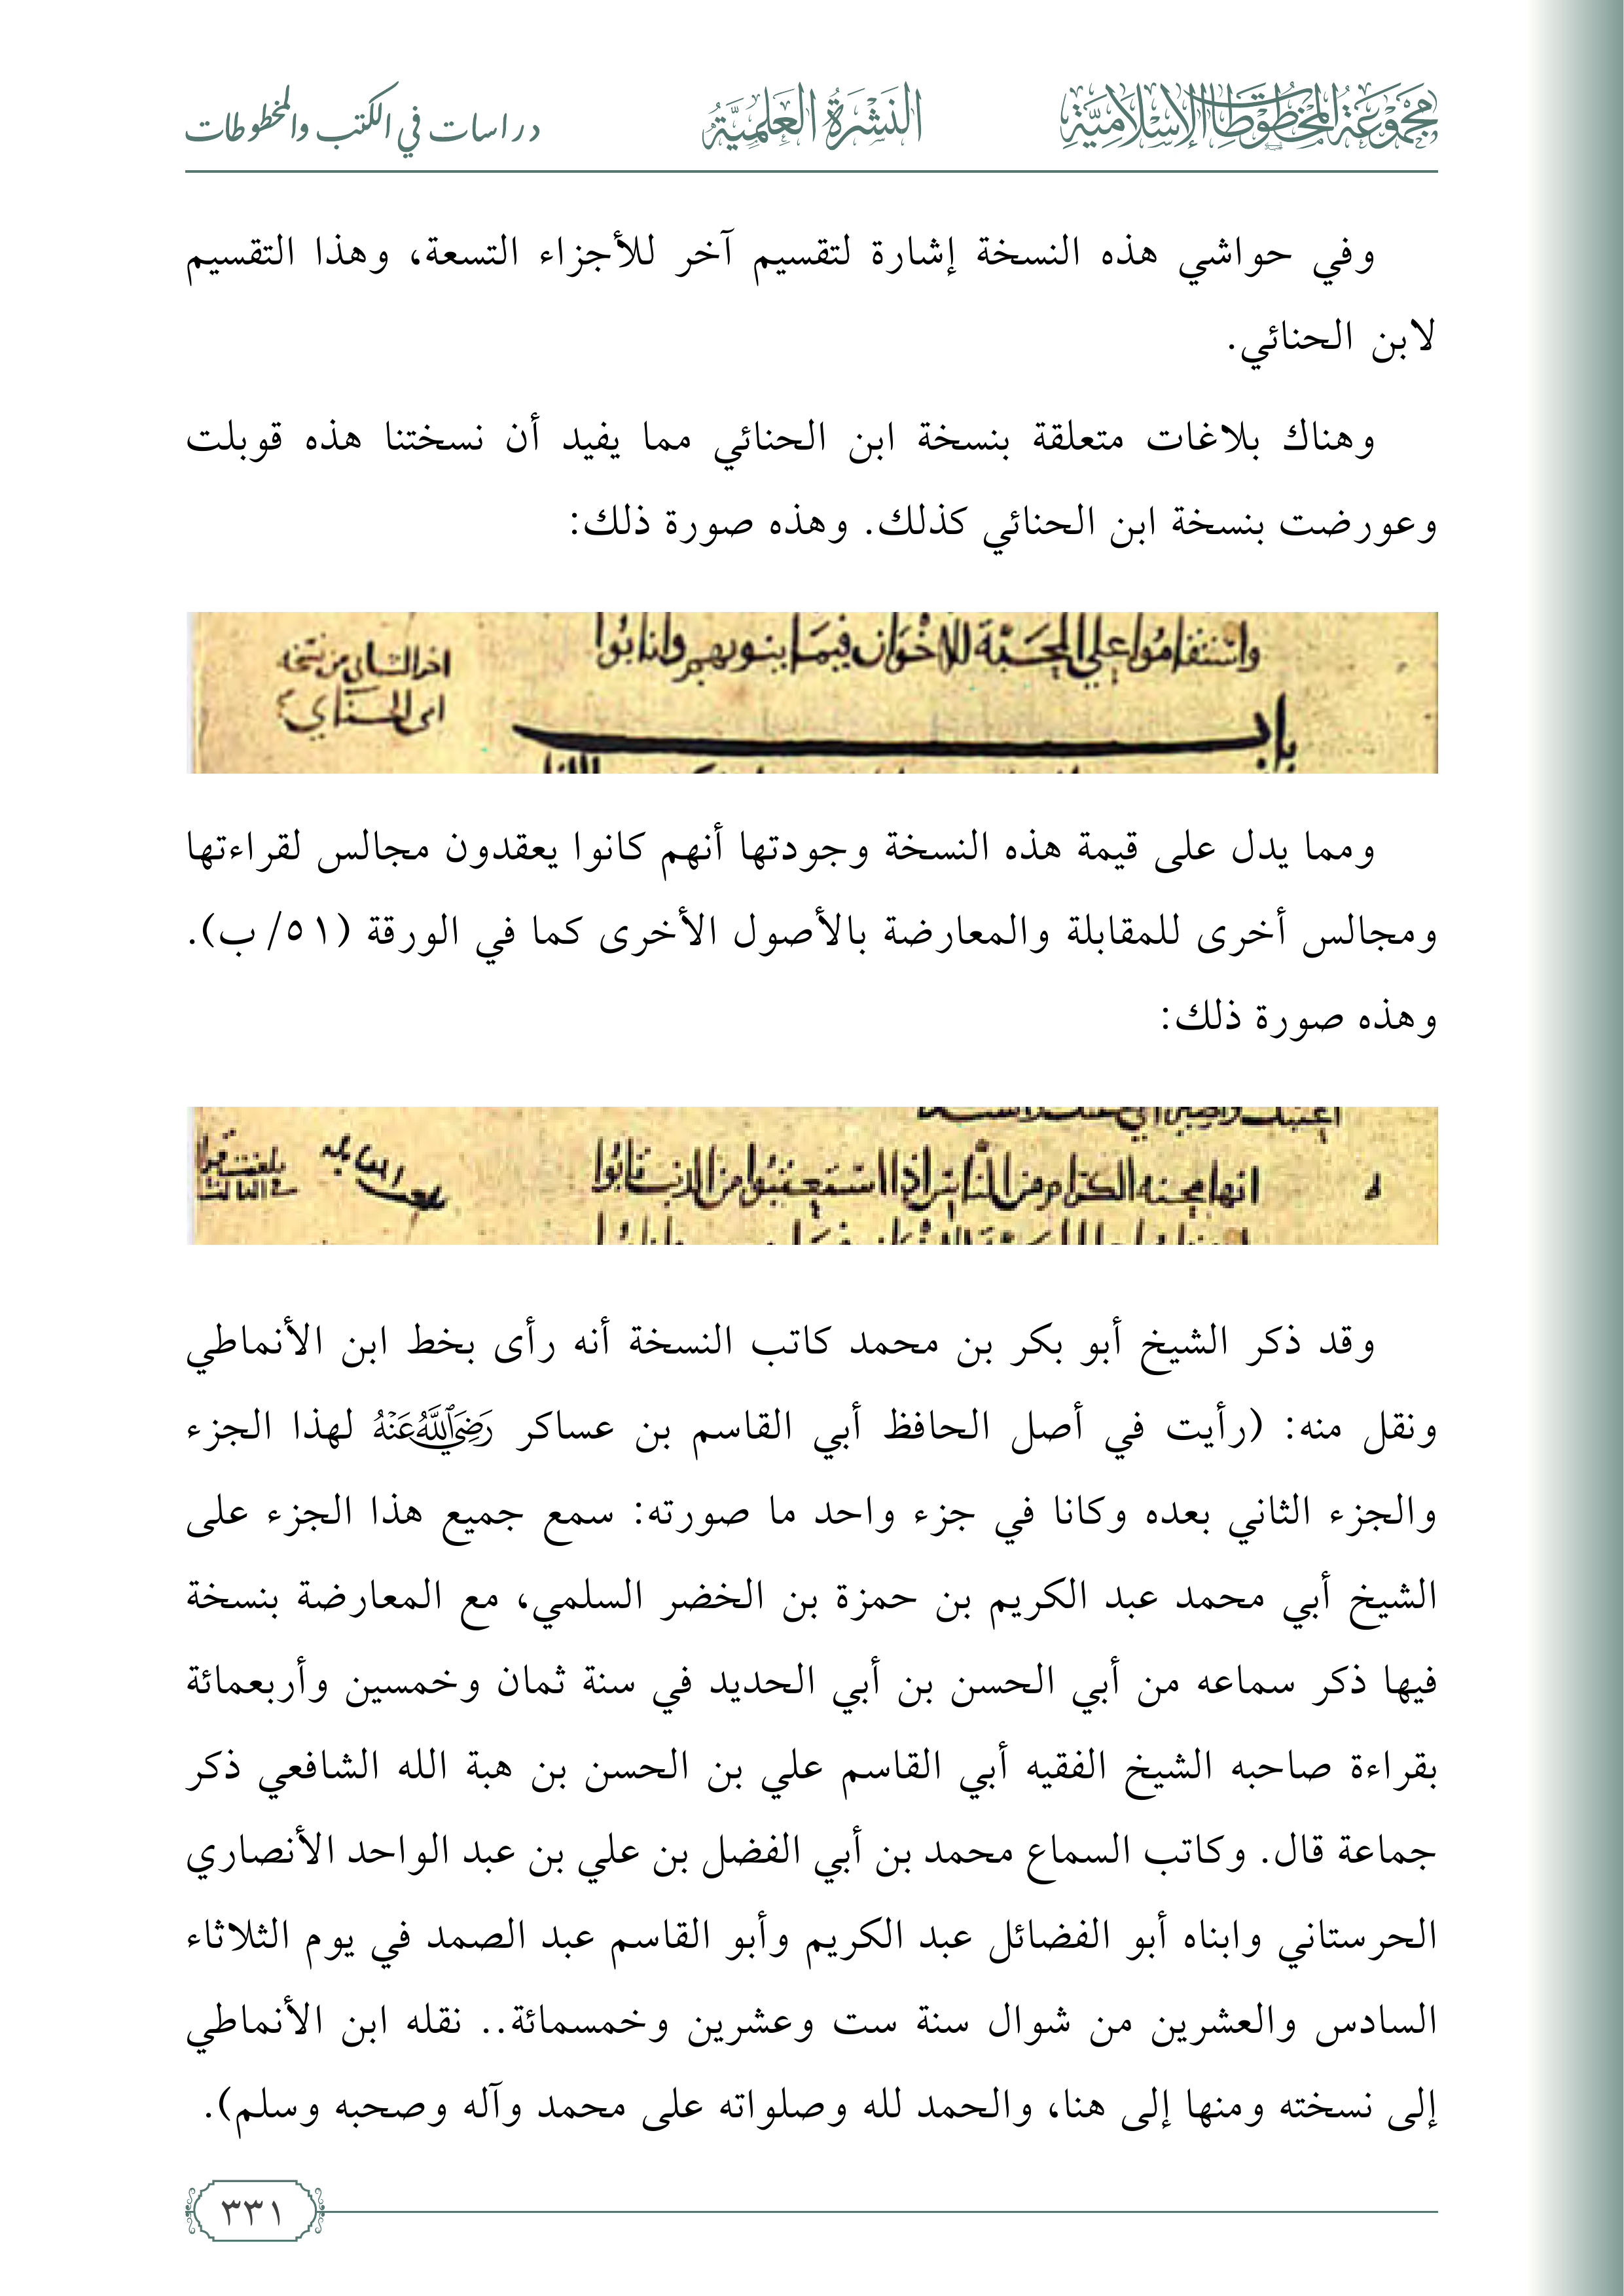 مجموعة المخطوطات الإسلامية
النشرة العلمية
دراسات في الكتب والمخطوطات
وفي حواشي هذه النسخة إشارة لتقسيم آخر للأجزاء التسعة، وهذا التقسيم
لابن الحنائي.
وهناك بلاغات متعلقة بنسخة ابن الحنائي مما يفيد أن نسختنا هذه قوبلت
وعورضت بنسخة ابن الحنائي كذلك. وهذه صورة ذلك:
واستقاموا على المحبة للاخوان فيما ينوبهم وانابوا
اخر الثاني من نسخة
ابن الحنائي
باب
ومما يدل على قيمة هذه النسخة وجودتها أنهم كانوا يعقدون مجالس لقراءتها
ومجالس أخرى للمقابلة والمعارضة بالأصول الأخرى كما في الورقة (٥١/ ب).
وهذه صورة ذلك:
من الناس اذا استعتبوا من الذنب تابوا
وقد ذكر الشيخ أبو بكر بن محمد كاتب النسخة أنه رأى بخط ابن الأنماطي
ونقل منه: (رأيت في أصل الحافظ أبي القاسم بن عساكر رَضِيَ اللَّهُ عَنْهُ لهذا الجزء
والجزء الثاني بعده وكانا في جزء واحد ما صورته: سمع جميع هذا الجزء على
الشيخ أبي محمد عبد الكريم بن حمزة بن الخضر السلمي، مع المعارضة بنسخة
فيها ذكر سماعه من أبي الحسن بن أبي الحديد في سنة ثمان وخمسين وأربعمائة
بقراءة صاحبه الشيخ الفقيه أبي القاسم علي بن الحسن بن هبة الله الشافعي ذكر
جماعة قال. وكاتب السماع محمد بن أبي الفضل بن علي بن عبد الواحد الأنصاري
الحرستاني وابناه أبو الفضائل عبد الكريم وأبو القاسم عبد الصمد في يوم الثلاثاء
السادس والعشرين من شوال سنة ست وعشرين وخمسمائة.. نقله ابن الأنماطي
إلى نسخته ومنها إلى هنا، والحمد لله وصلواته على محمد وآله وصحبه وسلم).
٣٣١